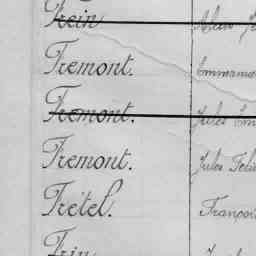 Frein
Fremont. Emmanuel
Fremont. Jules Em
Fremont. Jules Feli
Frétel. François
Frin